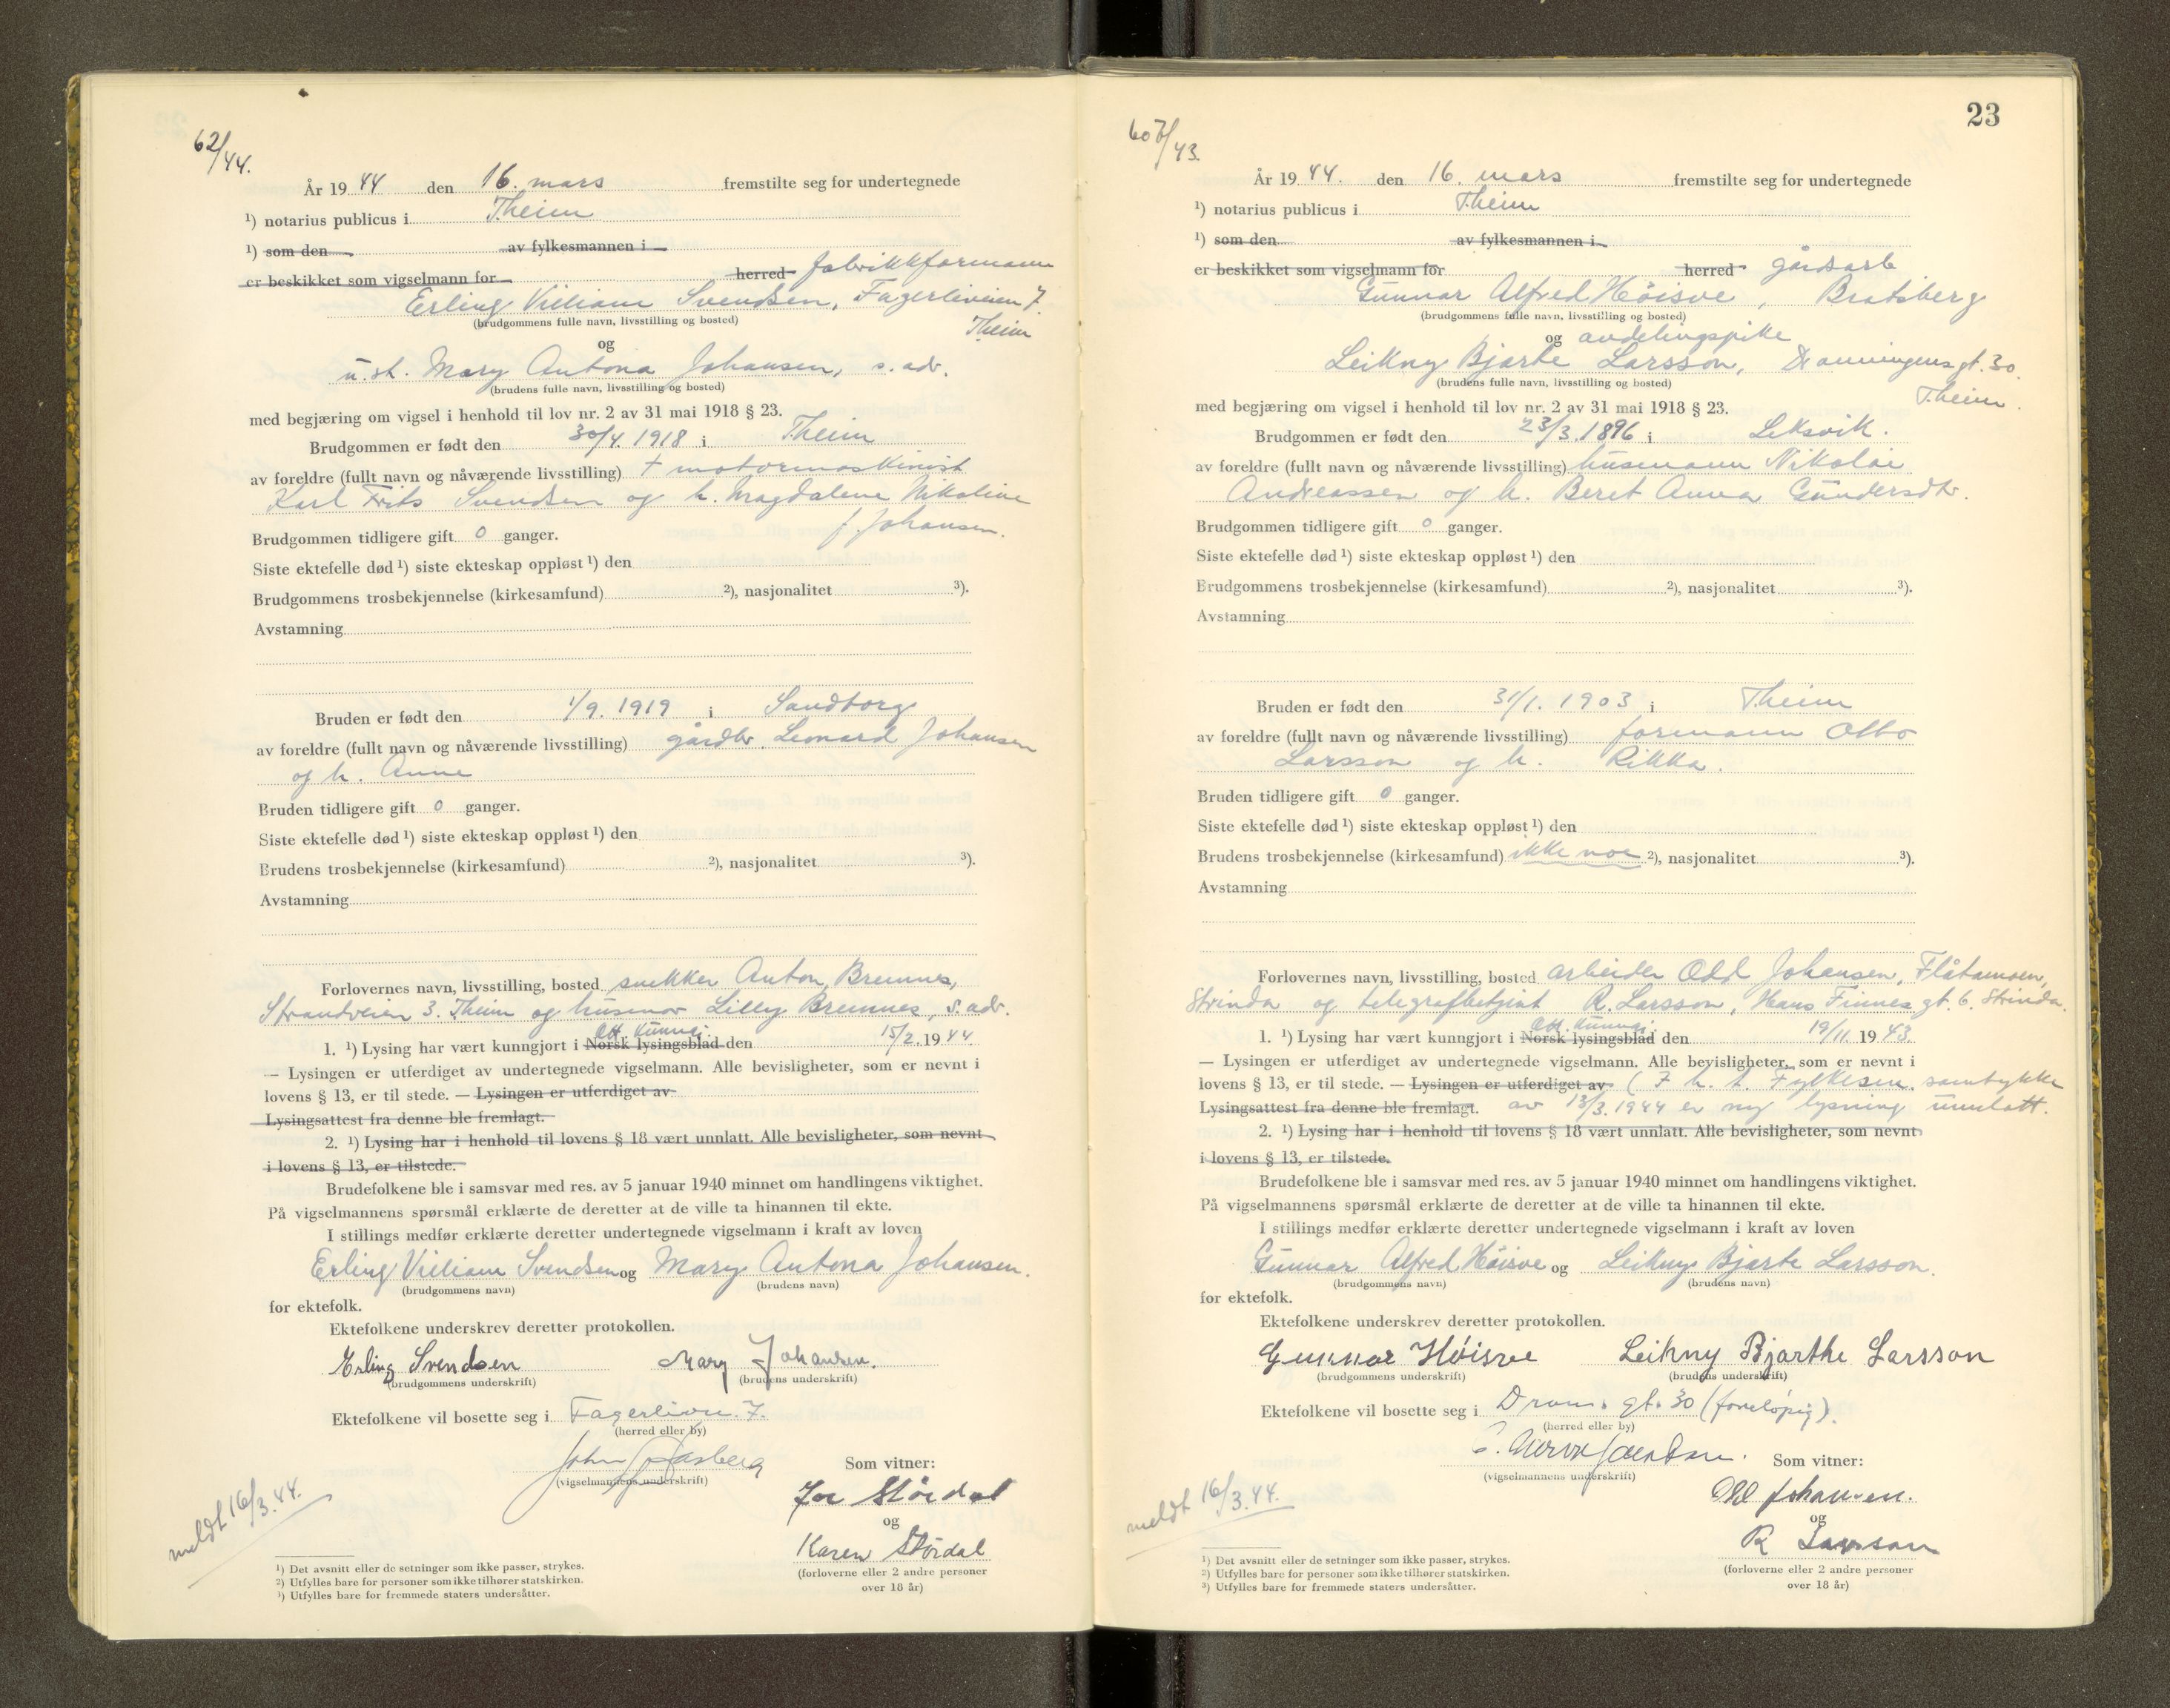 62/44.
År 1944 den 16. mars fremstilte seg for undertegnede
¹) notarius publicus i Theim
¹) som den av fylkesmannen i
er beskikket som vigselmann for herred fabrikkformann
Erling Viiliam Svendsen, Fagerliveien 7.
(brudgommens fulle navn, livsstilling og bosted)
Theim
og
u.st. Mary Antona Johansen, s. adr.
(brudens fulle navn, livsstilling og bosted)
med begjæring om vigsel i henhold til lov nr. 2 av 31 mai 1918 § 23.
Brudgommen er født den 30/4. 1918 i Theim
av foreldre (fullt navn og nåværende livsstilling) + motormaskinist
Karl Frits Svendsen og h. Magdalene Nikoline
f. Johansen.
Brudgommen tidligere gift 0 ganger.
Siste ektefelle død ¹) siste ekteskap oppløst ¹) den
Brudgommens trosbekjennelse (kirkesamfund) ²), nasjonalitet ³).
Avstamning
Bruden er født den 1/9. 1919 i Sandtorg
av foreldre (fullt navn og nåværende livsstilling) gårdbr. Leonard Johansen
og h. Anne
Bruden tidligere gift 0 ganger.
Siste ektefelle død ¹) siste ekteskap oppløst ¹) den
Brudens trosbekjennelse (kirkesamfund) ²), nasjonalitet ³).
Avstamning
Forlovernes navn, livsstilling, bosted snekker Anton Bremnes,
Strandveien 3. Theim og husmor Lilly Bremnes, s. adr.
Off. Kunngj.
1. ¹) Lysing har vært kunngjort i Norsk lysingsblad den 15/2. 1944.
— Lysingen er utferdiget av undertegnede vigselmann. Alle bevisligheter, som er nevnt i
lovens § 13, er til stede. — Lysingen er utferdiget av
Lysingsattest fra denne ble fremlagt.
2. ¹) Lysing har i henhold til lovens § 18 vært unnlatt. Alle bevisligheter, som nevnt
i lovens § 13, er tilstede.
Brudefolkene ble i samsvar med res. av 5 januar 1940 minnet om handlingens viktighet.
På vigselmannens spørsmål erklærte de deretter at de ville ta hinannen til ekte.
I stillings medfør erklærte deretter undertegnede vigselmann i kraft av loven
Erling Viiliam Svendsen og Mary Antona Johansen.
(brudgommens navn) (brudens navn)
for ektefolk.
Ektefolkene underskrev deretter protokollen.
Erling Svendsen Mary Johansen.
(brudgommens underskrift) (brudens underskrift)
Ektefolkene vil bosette seg i Fagerlivn. 7.
(herred eller by)
John
(vigselmannens underskrift)
Som vitner:
Stördal
og
Karen Stördal
(forloverne eller 2 andre personer
over 18 år)
meldt 16/3.44.
¹) Det avsnitt eller de setninger som ikke passer, strykes.
²) Utfylles bare for personer som ikke tilhører statskirken.
³) Utfylles bare for fremmede staters undersåtter.
23
607/43.
År 1944. den 16. mars fremstilte seg for undertegnede
¹) notarius publicus i Theim
¹) som den av fylkesmannen i
er beskikket som vigselmann for herred gårdsarb
Gunnar Alfred Höisve, Bratsberg
(brudgommens fulle navn, livsstilling og bosted)
og avdelingspike
Leikny Bjarte Larsson, Dronningens gt. 30.
(brudens fulle navn, livsstilling og bosted)
Theim.
med begjæring om vigsel i henhold til lov nr. 2 av 31 mai 1918 § 23.
Brudgommen er født den 23/3. 1896 i Leksvik.
av foreldre (fullt navn og nåværende livsstilling) husmann Nikolai
Andreassen og h. Beret Anna Gundersdtr.
Brudgommen tidligere gift 0 ganger.
Siste ektefelle død ¹) siste ekteskap oppløst ¹) den
Brudgommens trosbekjennelse (kirkesamfund) ²), nasjonalitet ³).
Avstamning
Bruden er født den 31/1. 1903 i Theim
av foreldre (fullt navn og nåværende livsstilling) formann Otto
Larsson og h. Rikka.
Bruden tidligere gift 0 ganger.
Siste ektefelle død ¹) siste ekteskap oppløst ¹) den
Brudens trosbekjennelse (kirkesamfund) ikke noe ²), nasjonalitet ³).
Avstamning
Forlovernes navn, livsstilling, bosted arbeider Odd Johansen, Flåtamoen,
Strinda og telegrafbetjent R. Larsson, Hans Finnes gt. 6. Strinda.
Off. Kunngj.
1. ¹) Lysing har vært kunngjort i Norsk lysingsblad den 19/11. 1943.
— Lysingen er utferdiget av undertegnede vigselmann. Alle bevisligheter, som er nevnt i
lovens § 13, er til stede. — Lysingen er utferdiget av (I h. t. Fylkesm. samtykke
Lysingsattest fra denne ble fremlagt. av 13/3. 1944 er ny lysning unnlatt.
2. ¹) Lysing har i henhold til lovens § 18 vært unnlatt. Alle bevisligheter, som nevnt
i lovens § 13, er tilstede.
Brudefolkene ble i samsvar med res. av 5 januar 1940 minnet om handlingens viktighet.
På vigselmannens spørsmål erklærte de deretter at de ville ta hinannen til ekte.
I stillings medfør erklærte deretter undertegnede vigselmann i kraft av loven
Gunnar Alfred Höisve og Leikny Bjarte Larsson.
(brudgommens navn) (brudens navn)
for ektefolk.
Ektefolkene underskrev deretter protokollen.
Gunnar Høisve Leikny Bjarthe Larsson
(brudgommens underskrift) (brudens underskrift)
Ektefolkene vil bosette seg i Dronn. gt. 30 (foreløpig).
(herred eller by)
(vigselmannens underskrift)
Som vitner:
Odd Johansen.
og
R Larsson
(forloverne eller 2 andre personer
over 18 år)
meldt 16/3.44.
¹) Det avsnitt eller de setninger som ikke passer, strykes.
²) Utfylles bare for personer som ikke tilhører statskirken.
³) Utfylles bare for fremmede staters undersåtter.